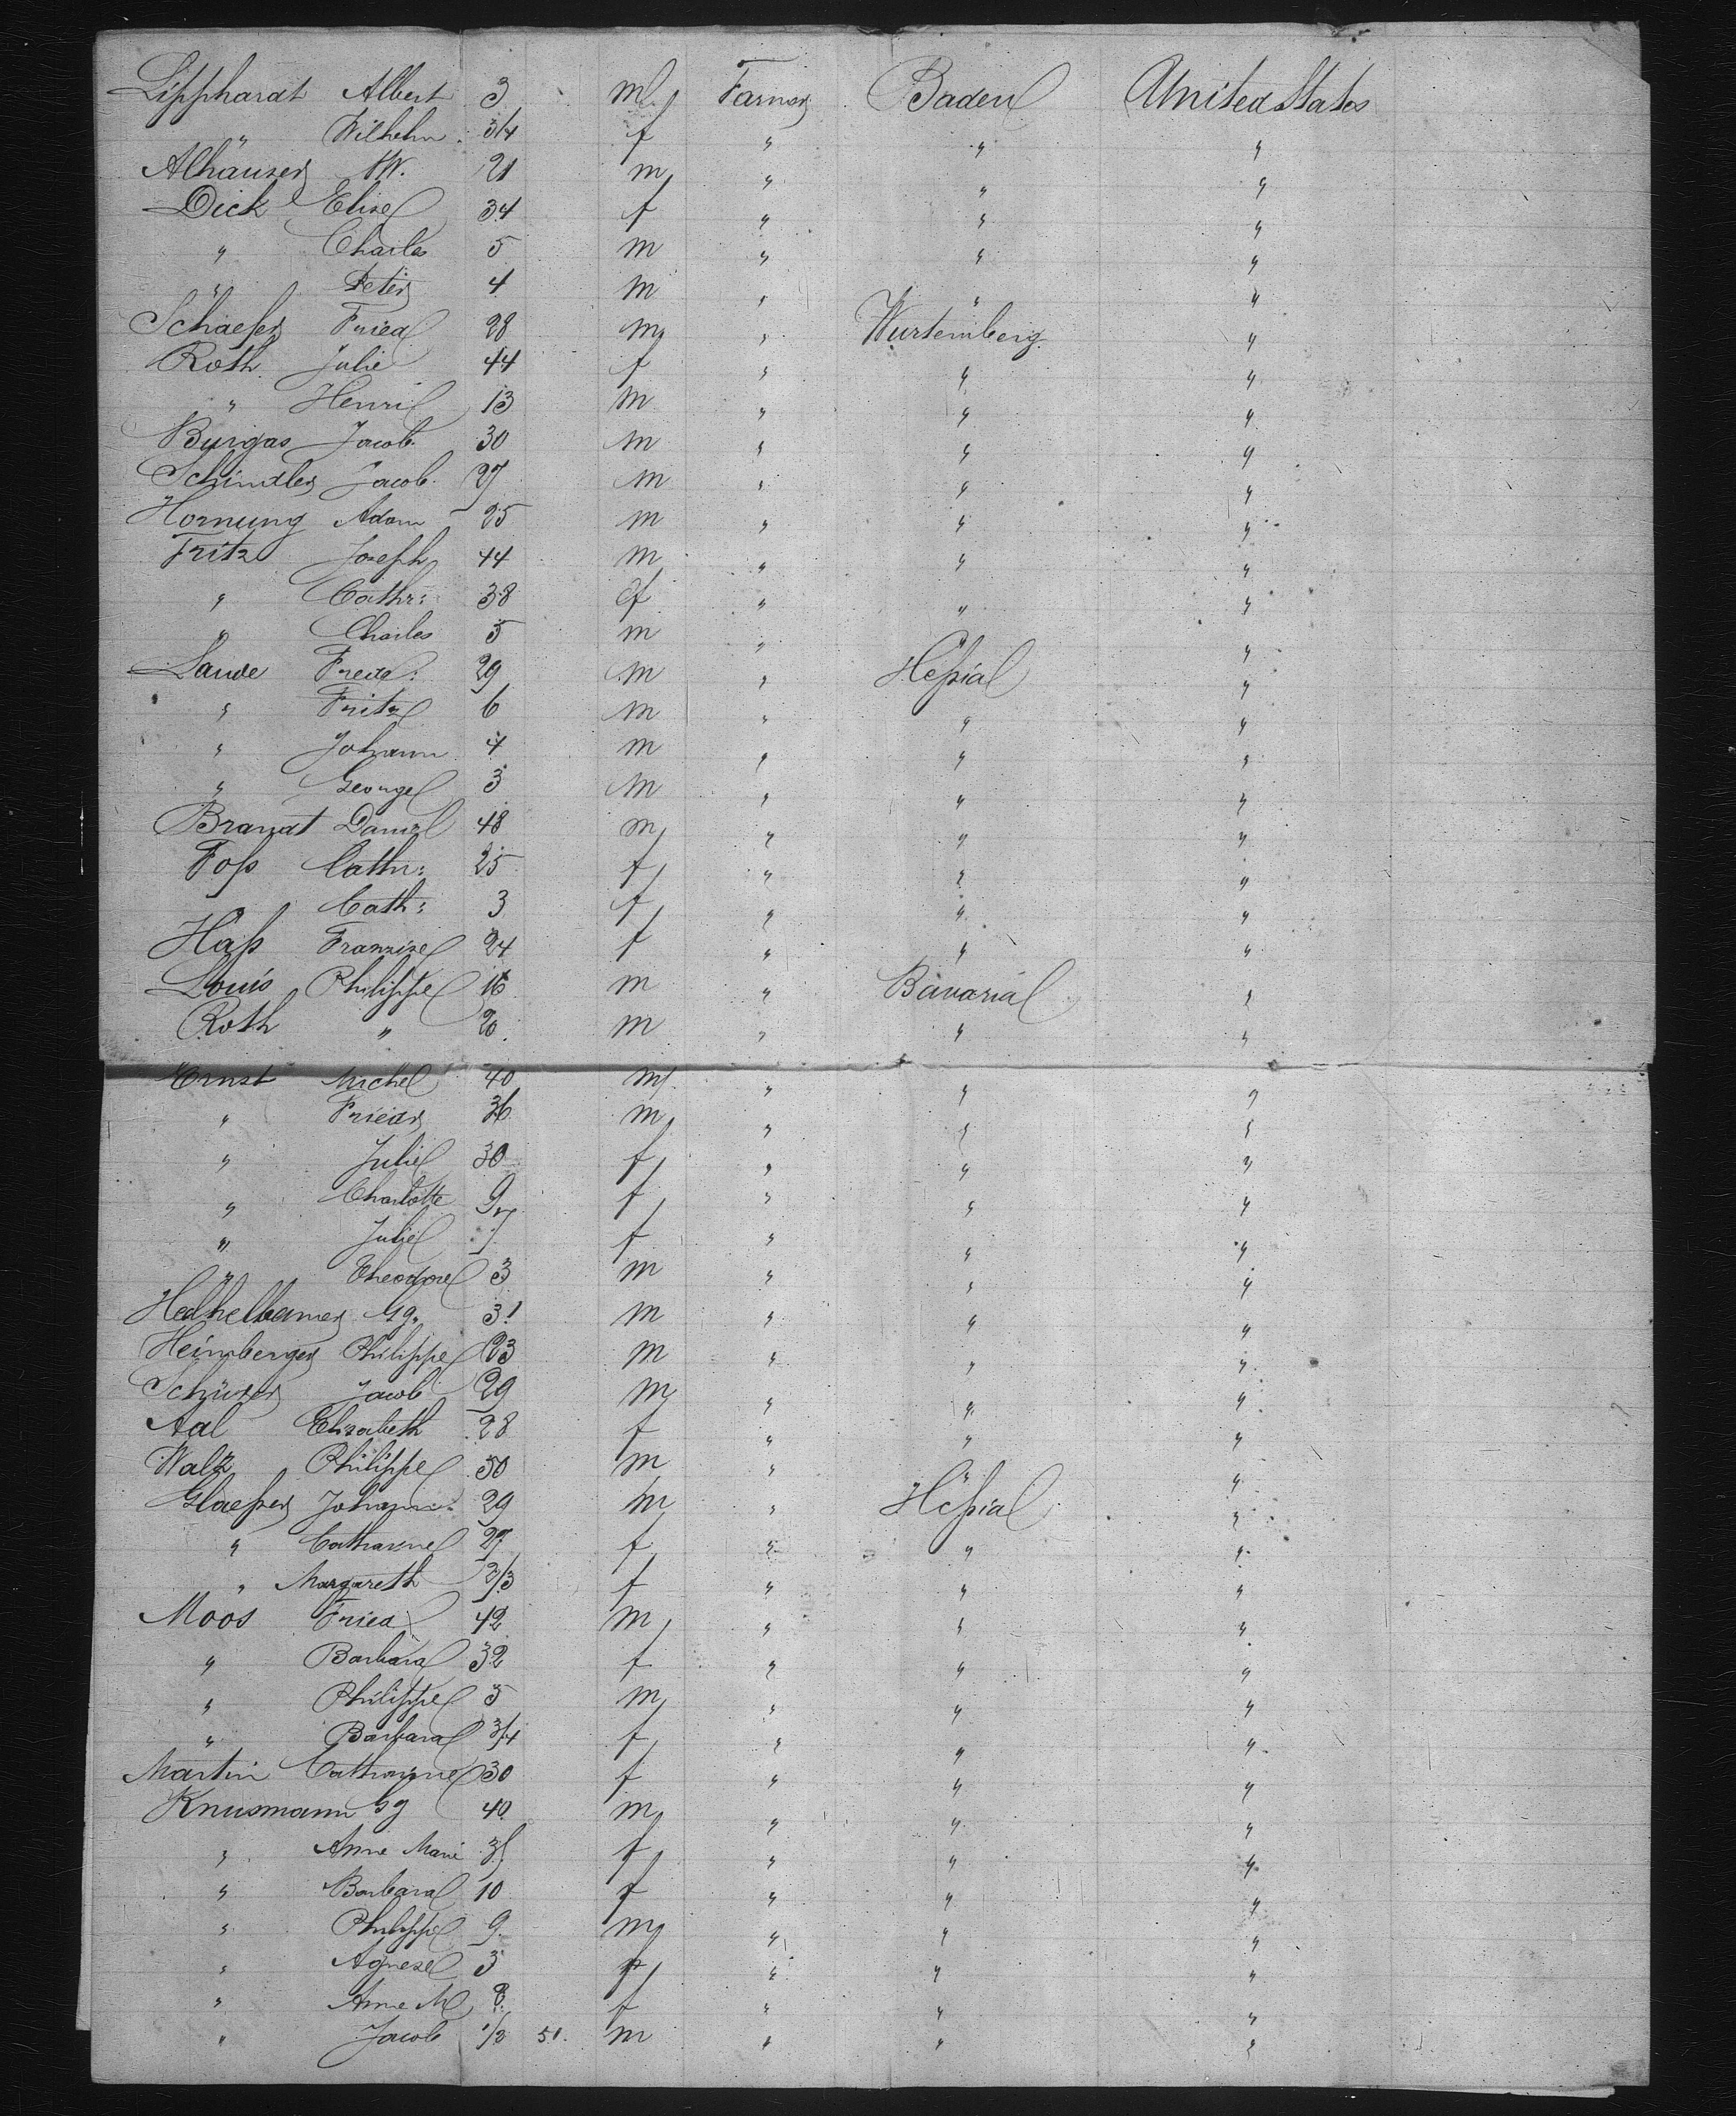 Lipphardt Albert 3 m Farmer Baden United States
" Wilhelm 3/4 f " " "
Alhäuser W. 21 m " " "
Dick Elise 34 f " " "
" Charles 5 m " " "
" Peter 4 m " " "
Schaefer Fried 28 m " Wurtemberg "
Roth Julie 44 f " " "
" Henri 13 m " " "
Burgas Jacob 30 m " " "
Schindler Jacob 27 m " " "
Hornung Adam 25 m " " "
Fritz Joseph 44 m " " "
" Cathr: 38 f " " "
" Charles 5 m " "
Laude Fred: 29 m " Heßia "
" Fritz 6 m " " "
" Johann 4 m " " "
" George 3 m " " "
Brandt Daniel 48 m " " "
Foß Cathr: 25 f " " "
Cath: 3 f " " "
Haß Franzise 24 f " " "
Louis Philippe 16 m " Bavaria "
Roth " 20 m " " "
Ernst Michel 40 m " " "
" Friedr 36 m " " "
" Julie 30 f " " "
" Charlotte 9 f " " "
" Julie 7 f " " "
" Theodore 3 m " " "
Gg. 31 m " " "
Heimberger Philippe 23 m " " "
Jacob 29 m " " "
Aal Elisabeth 28 f " " "
Waltz Philippe 50 m " " "
Glaeßer Johann 29 m " Heßia "
" Catharine 27 f " " "
" Margareth 2/3 f " " "
Moos Fried 42 m " " "
" Barbara 32 f " " "
" Philippe 5 m " " "
" Barbara 3/4 f " " "
Martin Catharine 30 f " " "
Knusmann Gg 40 m " " "
" Anne Marie f " " "
" Barbara 10 f " " "
" Philippe 9 m " " "
" Agnese 3 f " " "
" Anne M 8 f " " "
" Jacob 1/2 51. m " " "